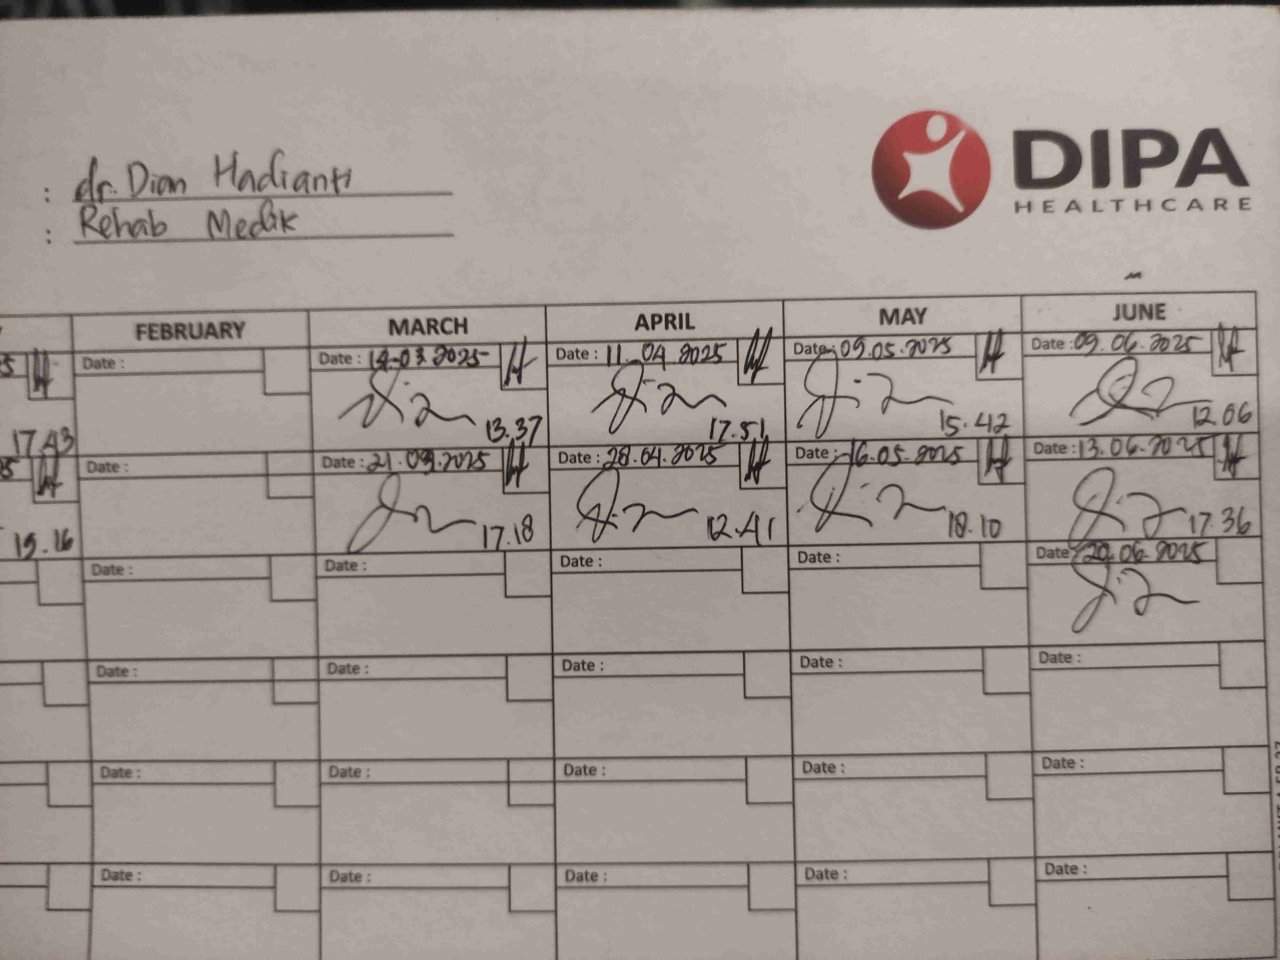 DIPA
HEALTHCARE
: dr. Dian Hadianti
: Rehab Medik
FEBRUARY MARCH APRIL MAY JUNE
5 Date : Date : 14-03.2025 Date : 11.04.2025 Date : 09.05.2025 Date : 09.06.2025
17.43 13.37 17.51 15.42 12.06
5 Date : Date : 21.03.2025 Date : 28.04.2025 Date : 16.05.2025 Date : 13.06.2025
15.16 17.18 12.41 18.10 17.36
Date : Date : Date : Date : Date : 20.06.2025
Date : Date : Date : Date : Date :
Date : Date : Date : Date : Date :
Date : Date : Date : Date : Date :